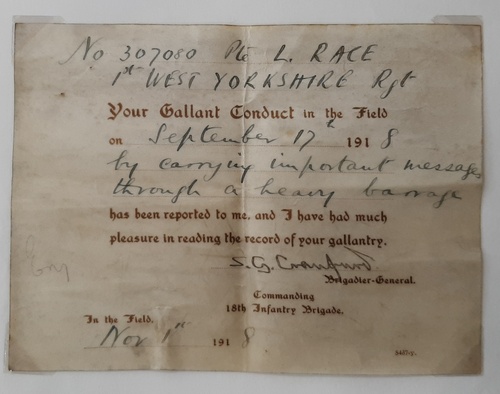 No 307080 Pte L. RACE
1st WEST YORKSHIRE Rgt
Your Gallant Conduct in the Field
on September 17th 1918
by carrying important messages
through a heavy barrage
has been reported to me, and I have had much
pleasure in reading the record of your gallantry.
Brigadier-General.
Commanding
18th Infantry Brigade.
In the Field.
Nov 1st 1918